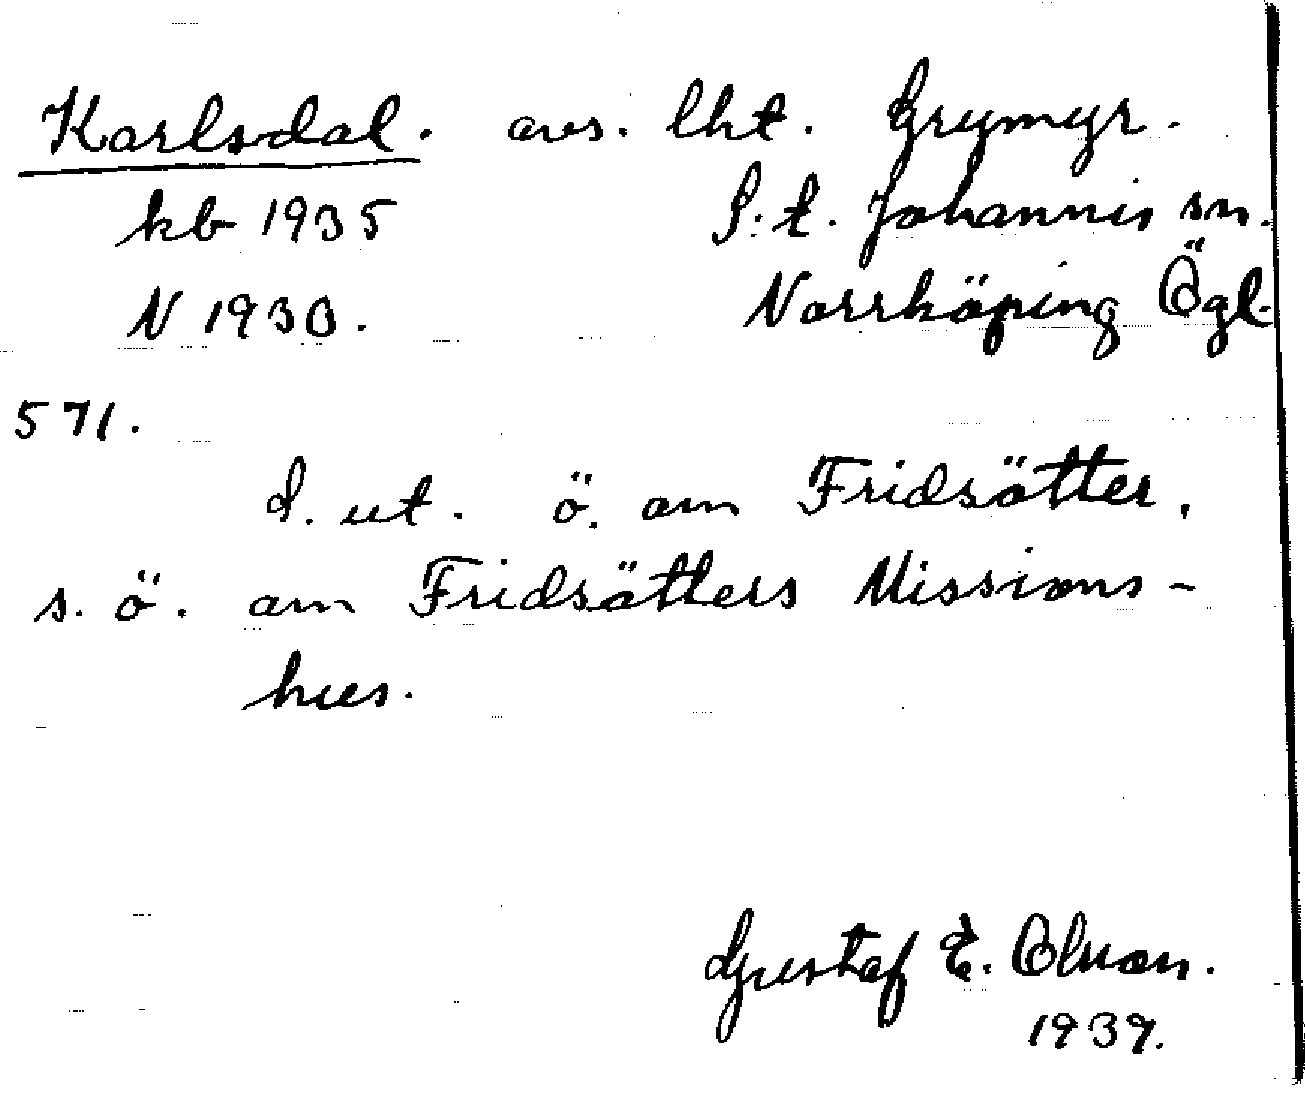 Karlsdal. avs. lht. Grymyr.
kb 1935 S:t. Johannis sn.
N 1930. Norrköping Ögl.
571.
I. ut. ö. om Fridsätter,
s. ö. om Fridsätters Missions-
hus.
Gustaf E. Olsson.
1939.